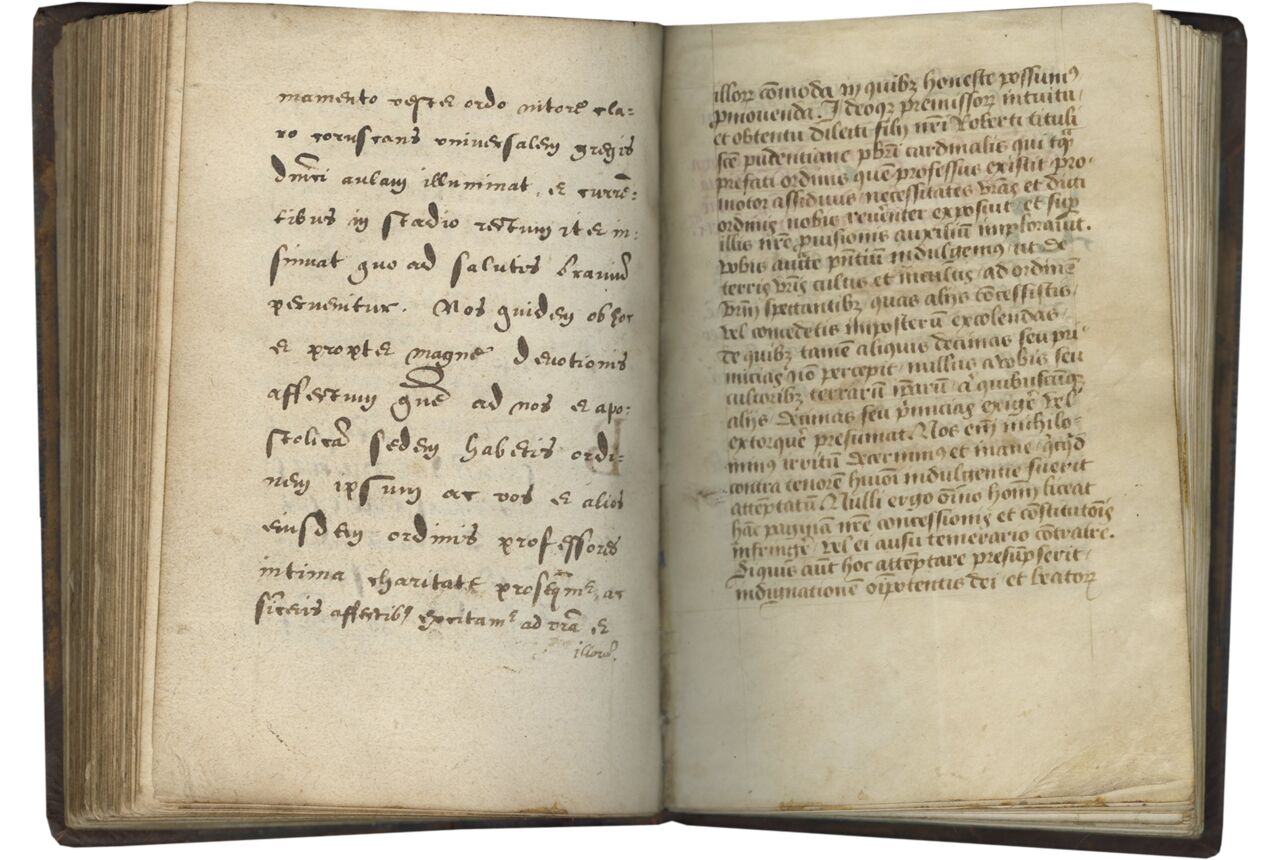 mamento vester ordo nitorē cla-
ro coruscans universalem gregis
dn̄ici aulam illuminat, et currē-
tibus in stadio rectum iter in-
sinuat quo ad salutis braviū
pervenitur. Nos quidem ob hoc
et propter magnē devotionis
affectum quē ad nos et apo-
stolicā sedem habetis ordi-
nem ipsum ac vos et alios
eiusdem ordinis professores
intima charitate prosequimr, ac
sīceris affectibꝰ excitamr ad vrā et
illorꝫ
illorꝝ cōmoda in quibꝫ honeste possumꝰ
ꝑmouenda. Ideoqꝫ premissorꝝ intuitu
et obtentu dilecti filij nr̄i Roberti tituli
scē pudentiane pbr̄i cardinalis qui tqꝫ
prefati ordinis quē professus existit pro-
motor assiduus necessitates vrās et dicti
ordinis nobis reuerēter exposuit et suꝑ
illis nrē prouisionis auxiliū implorauit.
vobis aucte pn̄tiū indulgemus ut de
terris vrīs cultis et incultis ad ordinē
vrm̄ spectantibꝫ quas alijs cōcessistis
vel concedetis imposterū excolendas
de quibꝫ tamē aliquis decimas seu pri-
micias nō percepit nullus a vobis seu
cultoribꝫ terrarū ipsarū a quibuscūqꝫ
alijs decimas seu pmicias exigē vel
extorquē presumat. Nos em̄ nichilo-
minus irritum decernimus et inane quicqd
contra tenorē huiōi indulgentie fuerit
attēptatū. Nulli ergo oīno homī liceat
hāc paginā nrē concessionis et cōstitutōis
infringē vel ei ausu temerario cōtraire.
Siquis aūt hoc attēptare presūpserit
indignationē oīpotentis dei et beatorꝝ